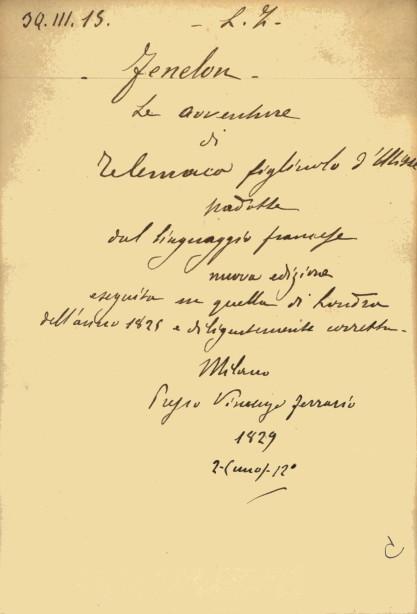 39.III.15. - L. Z. -
Fenelon -
Le avventure
di
Telemaco figliuolo d'Ulisse
tradotte
dal linguaggio francese
nuova edizione
eseguita su quella di Londra
dell'anno 1825 e diligentemente corretta -
Milano
Presso Vincenzo Ferrario
1829
2- 12°